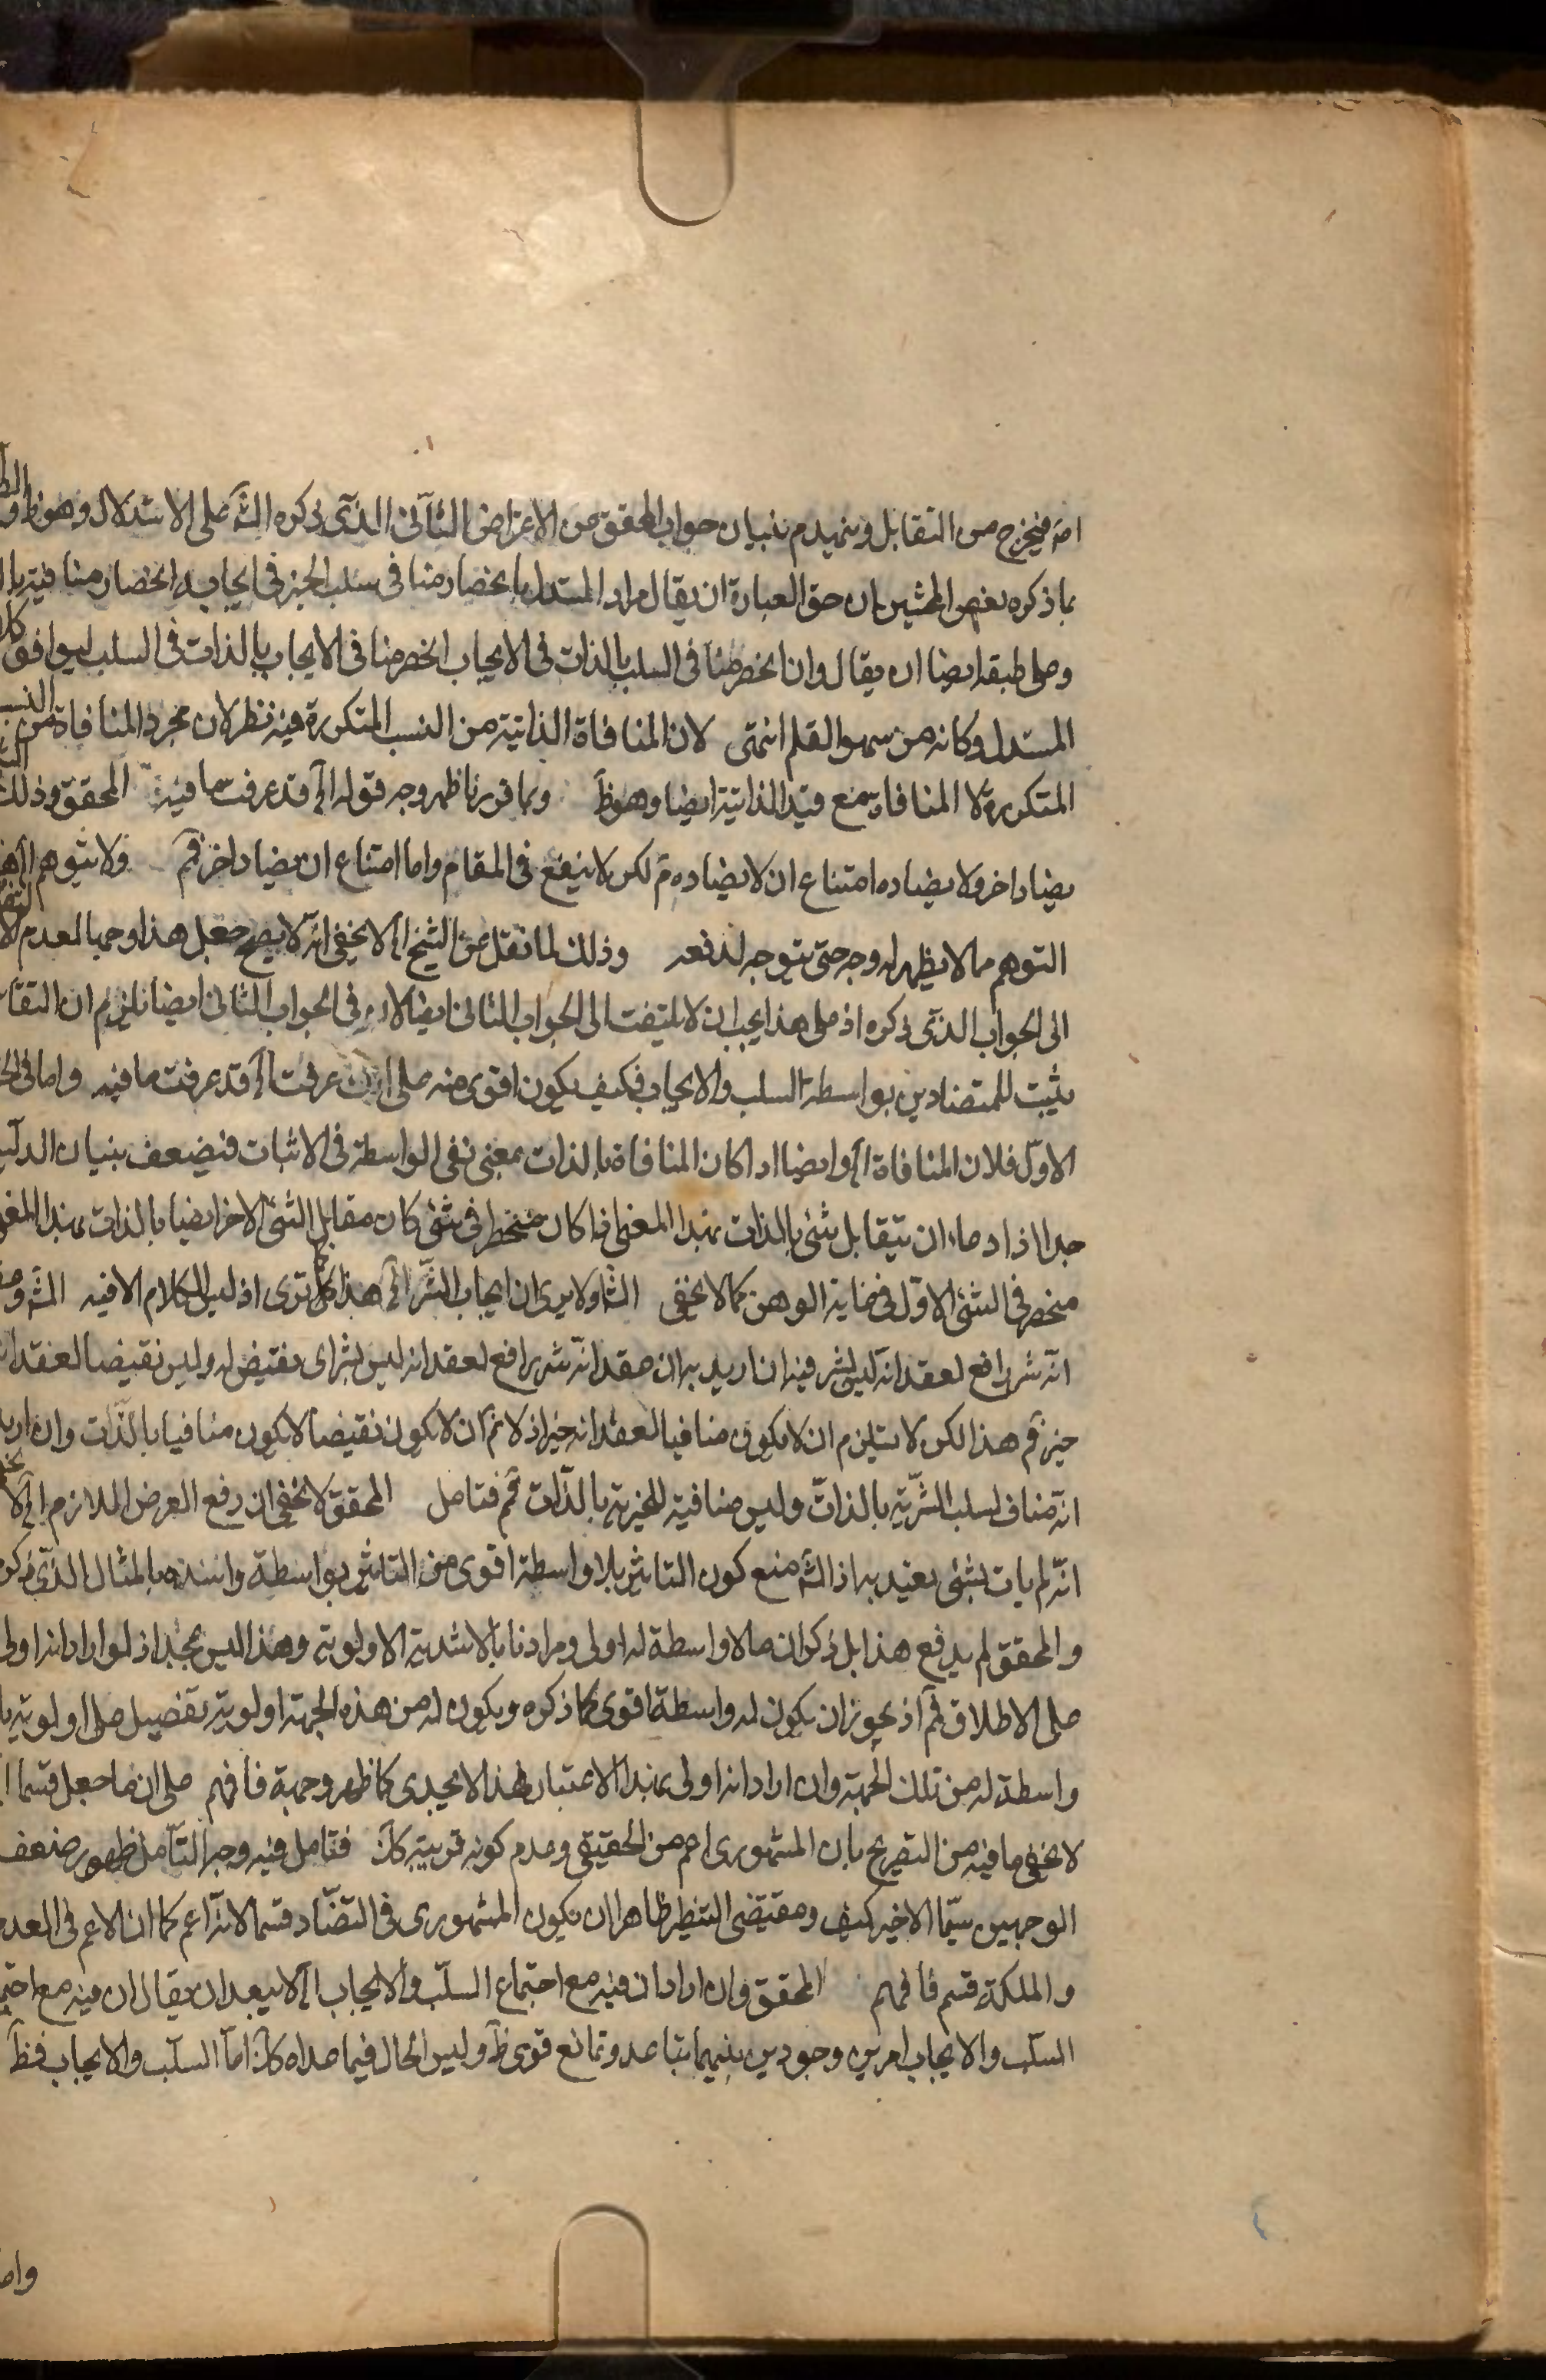 امّ فيخرج من التقابل وينهدم بنيان جواب المحقق عن الاعتراض الثانى الذى ذكره الشّ على الاستدلال وهو ظ
بما ذكره بعض المحشين بان حق العبارة ان يقال مراد المستدل بانحصار منافى سلب الخير فى ايجابه انحصار منافيه بال
وعلى طبقه ايضا ان يقال وان انحصر منافى السلب بالذات فى الايجاب انحصر منافى الايجاب بالذات فى السلب ليوافق كلا
المستدل وكانه من سهو القلم انتهى لان المنافاة الذاتية من النسب المتكررة فيه نظر لان مجرد المنافاة من النسب
المتكررة لا المنافاة مع قيد الذاتية ايضا وهو ظ وبما قررنا ظهر وجه قوله الخ قد عرفت ما فيه المحقق وذلك
يضاد اخر ولا يضاده امتناع ان لا يضاده مّ لكن لا ينفع فى المقام واما امتناع ان يضاد اخر فمّ ولا يتوهم
التوهم مما لا يظهر له وجه حتى يتوجه لدفعه وذلك لما نقل عن الشيخ الخ لا يخفى انّه لا يصح جعل هذا وجها لعدم
الى الجواب الذى ذكره اذ على هذا يجب ان لا يلتفت الى الجواب الثانى ايضا لان فى الجواب الثانى ايضا يلزم ان التقا
يثبت للمتضادين بواسطة السلب والايجاب فكيف يكون اقوى منه على انك عرفت الخ قد عرفت ما فيه واما فى
الاوّل فلان المنافاة الخ وايضا اذا كان المنافاة بالذات بمعنى نفى الواسطة فى الاثبات فيضعف بنيان الدليل
جدا اذ ادعاء ان تقابل شئ بالذات بهذا المعنى اذا كان منحصرا فى شئ كان مقابل الشئ الاخر ايضا بالذات بهذا المعنى
منحصر فى الشئ الاوّل فى غاية الوهن كما لا يخفى الشّ اولا يرى ان ايجاب الشّر الخ هذا كما ترى اذ ليس الكلام الا فيه الشّ
انّه شر رافع لعقد انّه ليس بشر فيه ان اريد به ان عقد انّه شر رافع لعقد انه ليس بشر اى نقيض له وليس نقيضا لعقد
خير فمّ هذا لكن لا يستلزم ان لا يكون منافيا لعقد انه خير اذ لا نمّ ان لا يكون نقيضا لا يكون منافيا بالذّات وان اريد
انّه مناف لسلب الشّرية بالذات وليس منافية للخيرية بالذّات فمّ فتامل المحقق لا يخفى ان رفع العرض اللازم الخ لا
انّه لم يات بشئ يعتد به اذ الشّ منع كون التاثير بلا واسطة اقوى من التاثير بواسطة واسنده بالمثال الذى ذكره
والمحقق لم يدفع هذا بل ذكر ان ما لا واسطة له اولى ومرادنا بالاشدية الاولوية وهذا ليس بمجد اذ لو اراد انه اولى
على الاطلاق فمّ اذ يجوز ان يكون له واسطة اقوى كما ذكره ويكون له من هذه الجهة اولوية بفضيل على اولوية
واسطة له من تلك الجهة وان اراد انه اولى بهذا الاعتبار فهذا لا يجدى كما ظهر وجهه فافهم على ان ما جعل قسما
لا يخفى ما فيه من التصريح بان المشهورى اعم من الحقيقى وعدم كونه قرينة كذ فتامل فيه وجه التّامل ظهور ضعف
الوجهين سيّما الاخير كيف ومقتضى التنظير ظاهرا ان يكون المشهورى فى التضّاد قسما لانّه اعم كما ان الاعم فى العدم
والملكة قسم فافهم المحقق وان اراد ان فيه مع اجتماع السلّب والايجاب الخ لا يبعد ان يقال ان فيه مع اجتما
السلّب والايجاب امرين وجودين بينهما تباعد وتمانع قوى ظّ وليس الحال فيما عداه كذ امّا السلّب والايجاب فظّ
واما